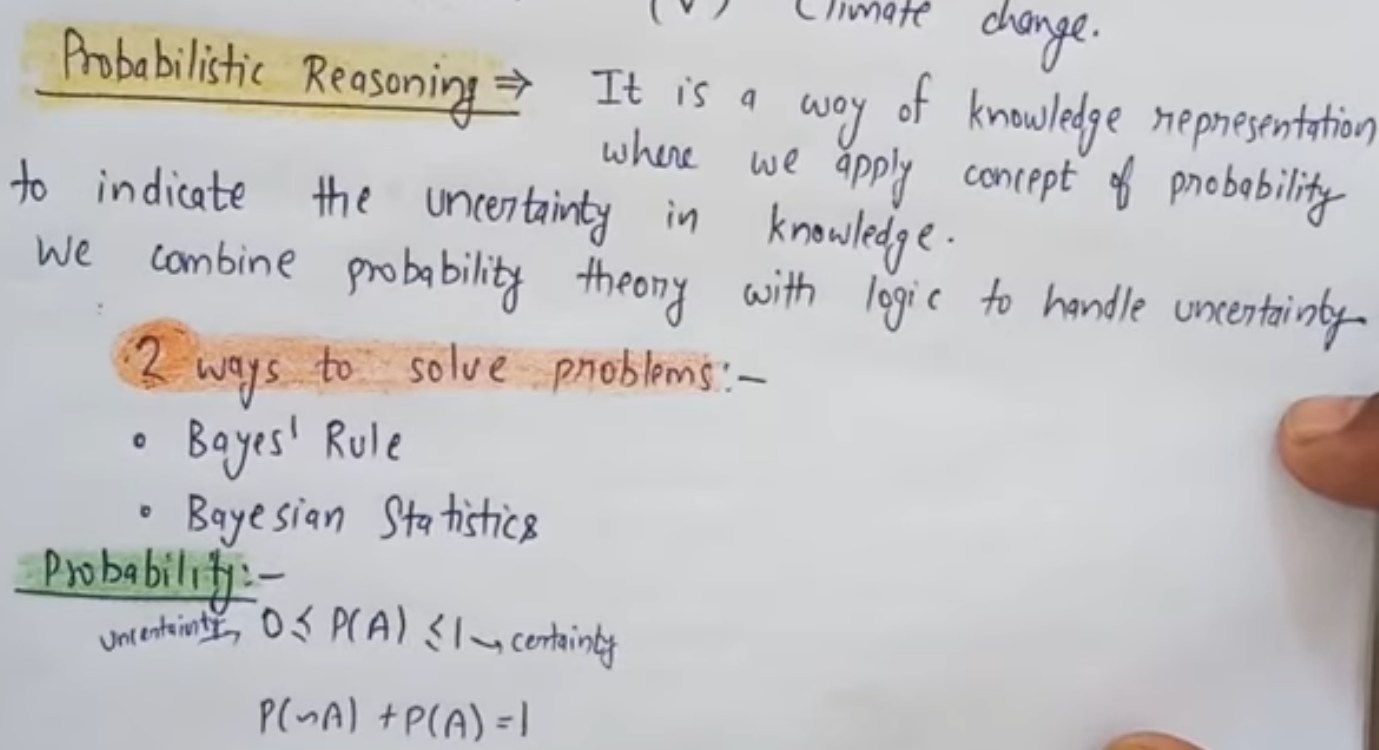 (V) Climate change.
Probabilistic Reasoning ⇒ It is a way of knowledge representation
where we apply concept of probability
to indicate the uncertainty in knowledge.
We combine probability theory with logic to handle uncertainty
2 ways to solve problems:-
• Bayes' Rule
• Bayesian Statistics
Probability:-
uncertainty, 0 ≤ P(A) ≤ 1 → certainty
P(~A) + P(A) = 1